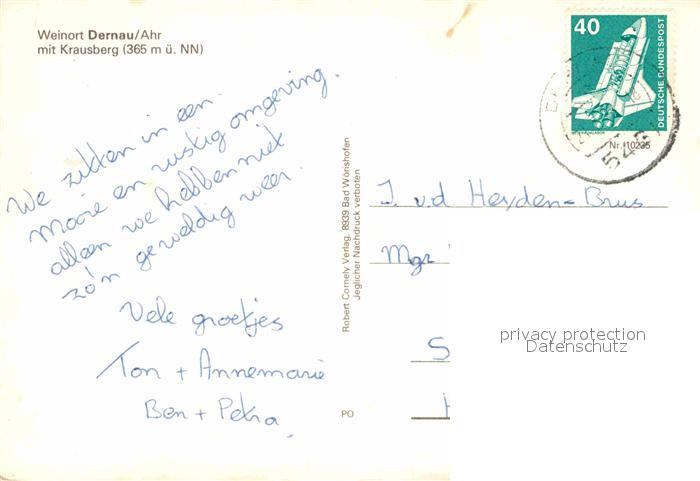 Weinort Dernau/Ahr
mit Krausberg (365 m ü. NN)
We zitten in een
mooie en rustig omgeving.
alleen we hebben niet
zo'n geweldig weer.
Vele groetjes
Ton + Annemarie
Ben + Petra.
Robert Cornely Verlag, 8939 Bad Wörishofen
Jeglicher Nachdruck verboten
PO
40
DEUTSCHE BUNDESPOST
Nr. 10235
J. v.d. Heyden-Brus
Mgr
S
privacy protection
Datenschutz